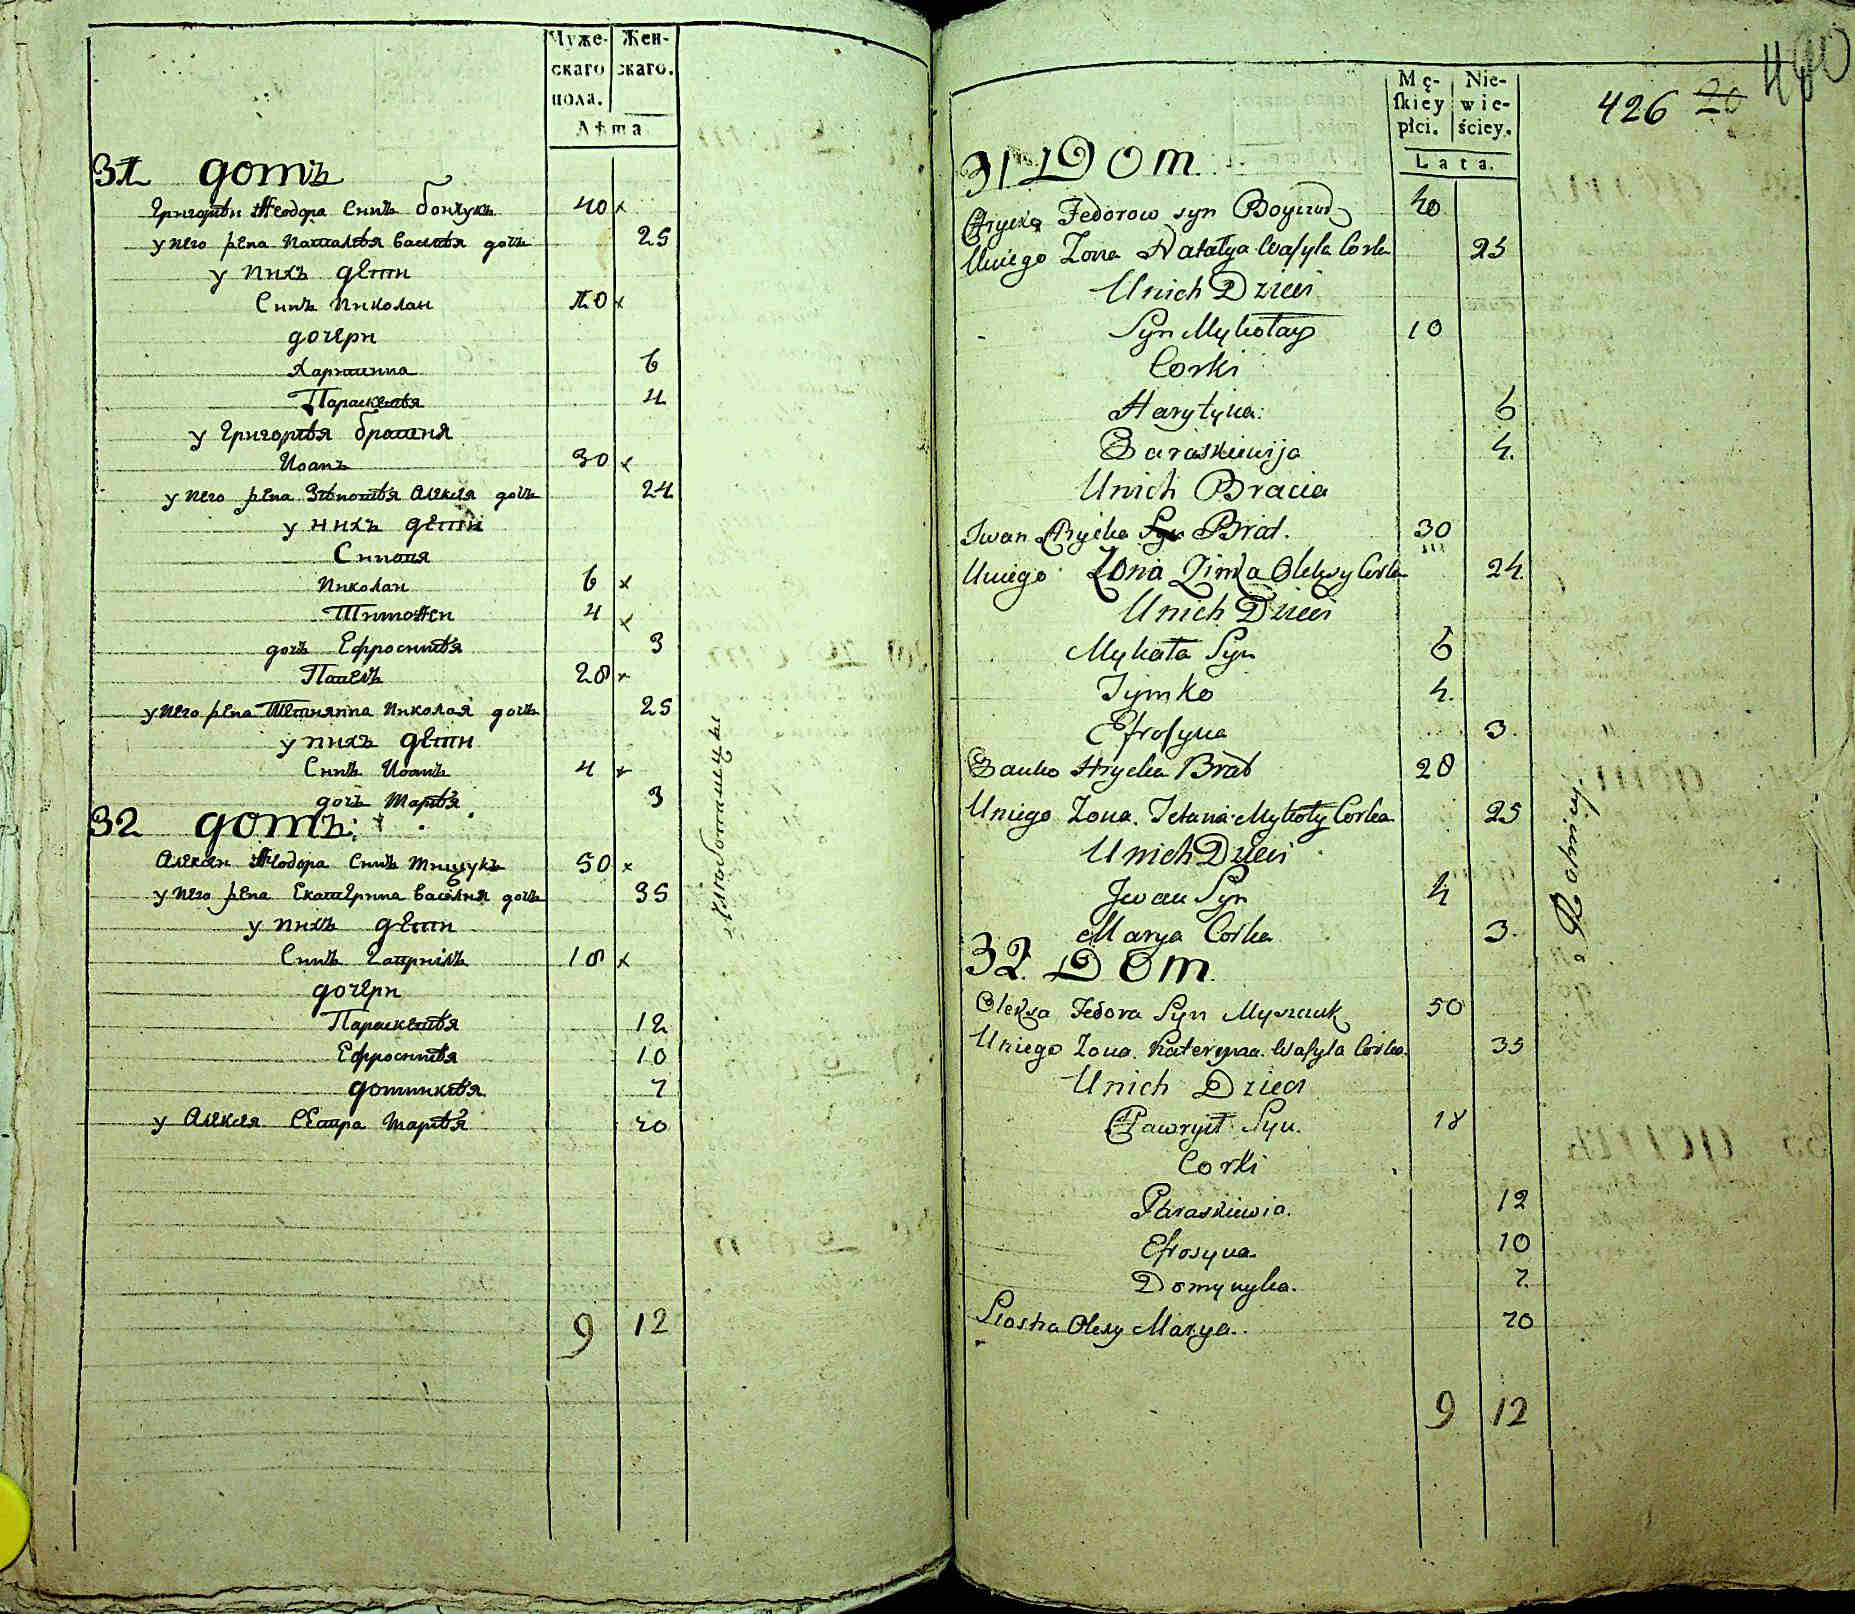 Муже-
скаго
пола.
Жен-
скаго.
Лѣта
31 домъ
Григорѣи Ѳеодора Синъ боичукъ 40 x
у него жена Наталѣя Василѣя дочь 25
у нихъ дети
Синъ Николаи 10 x
дочери
Харитинна 6
Параскевѣя 4
у Григорѣя братия
Иоанъ 30 x
у него жена Зѣновѣя Алексея дочь 24
у нихъ дети
Синовя
Николаи 6 x
Тимоѳеи 4 x
дочь Ефросинѣя 3
Павелъ 28 x
у него жена Тетиянна Николая дочь 25
у нихъ дети
Синъ Иоанъ 4 x
дочь Марѣя 3
32 домъ
Алексеи Ѳеодора Синъ мищукъ 50 x
у него жена Екатерина Василия дочь 35
у нихъ дети
Синъ Гавриилъ 18 x
дочери
Параскевѣя 12
Ефросинѣя 10
доминикѣя 7
у Алексея Сестра Марѣя 20
9 12
Хлѣборобци
Mę-
skiey
płci.
Nie-
wie-
ściey.
Lata.
426 20
490
31 Dom
Hrycko Fedorow syn Boyczuk 40
Uniego Zona Natalya Wasyla Corka 25
Unich Dzieci
Syn Mykołay 10
Corki
Harytyna 6
Paraskiewija 4
Unich Bracia
Iwan Hrycka Syn Brat. 30
Uniego Zona Zinka Oleksy Corka 24
Unich Dzieci
Mykała Syn 6
Tymko 4
Efrosyna 3
Pauko Hrycka Brat 28
Uniego Zona Tetana Mykoły Corka 25
Unich Dzieci
Iwan Syn 4
Marya Corka 3
32 Dom
Oleksa Fedora Syn Myszczuk 50
Uniego Zona Kateryna Wasyla Corka 35
Unich Dzieci
Hawrył Syn 18
Corki
Paraskiewia 12
Efrosyna 10
Domynyka 7
Siostra Olexy Marya 20
9 12